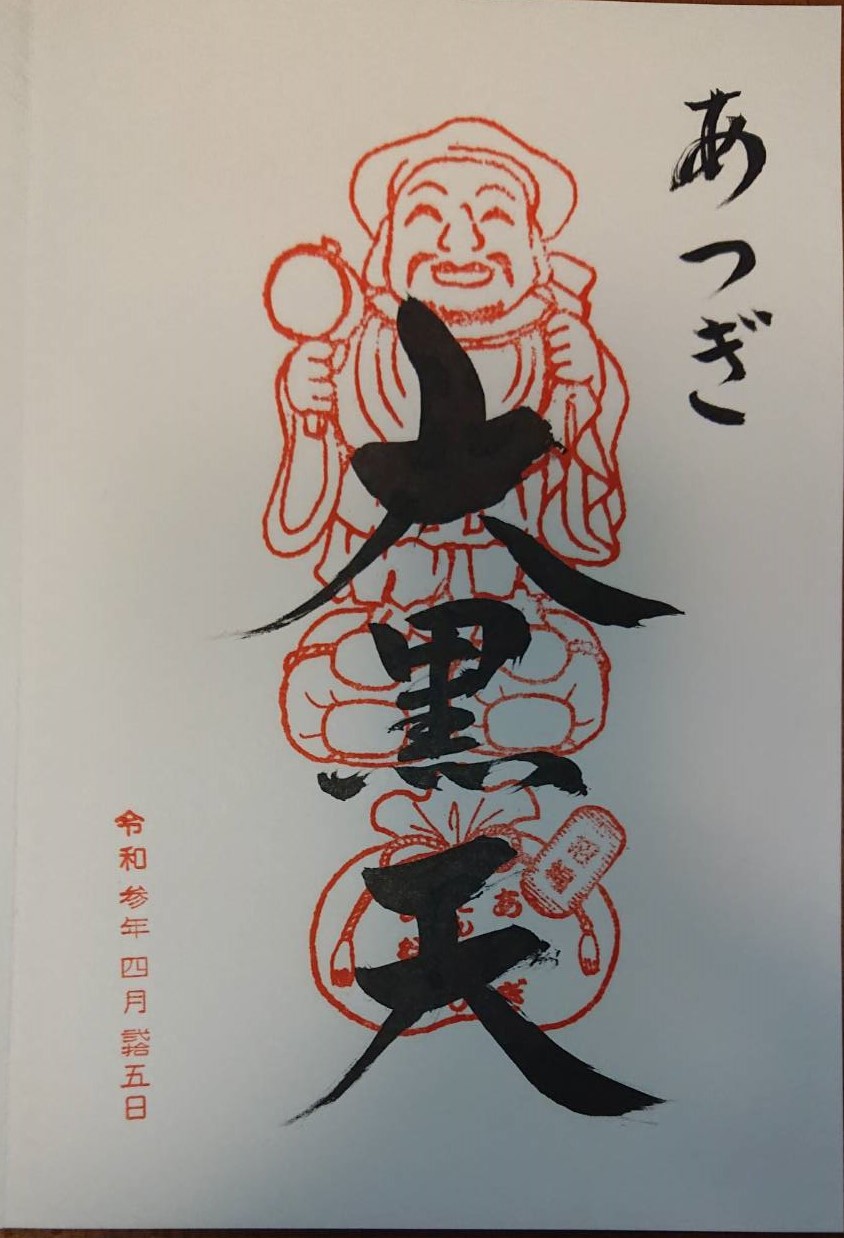 あつぎ
大黒天
令和参年四月弐拾五日